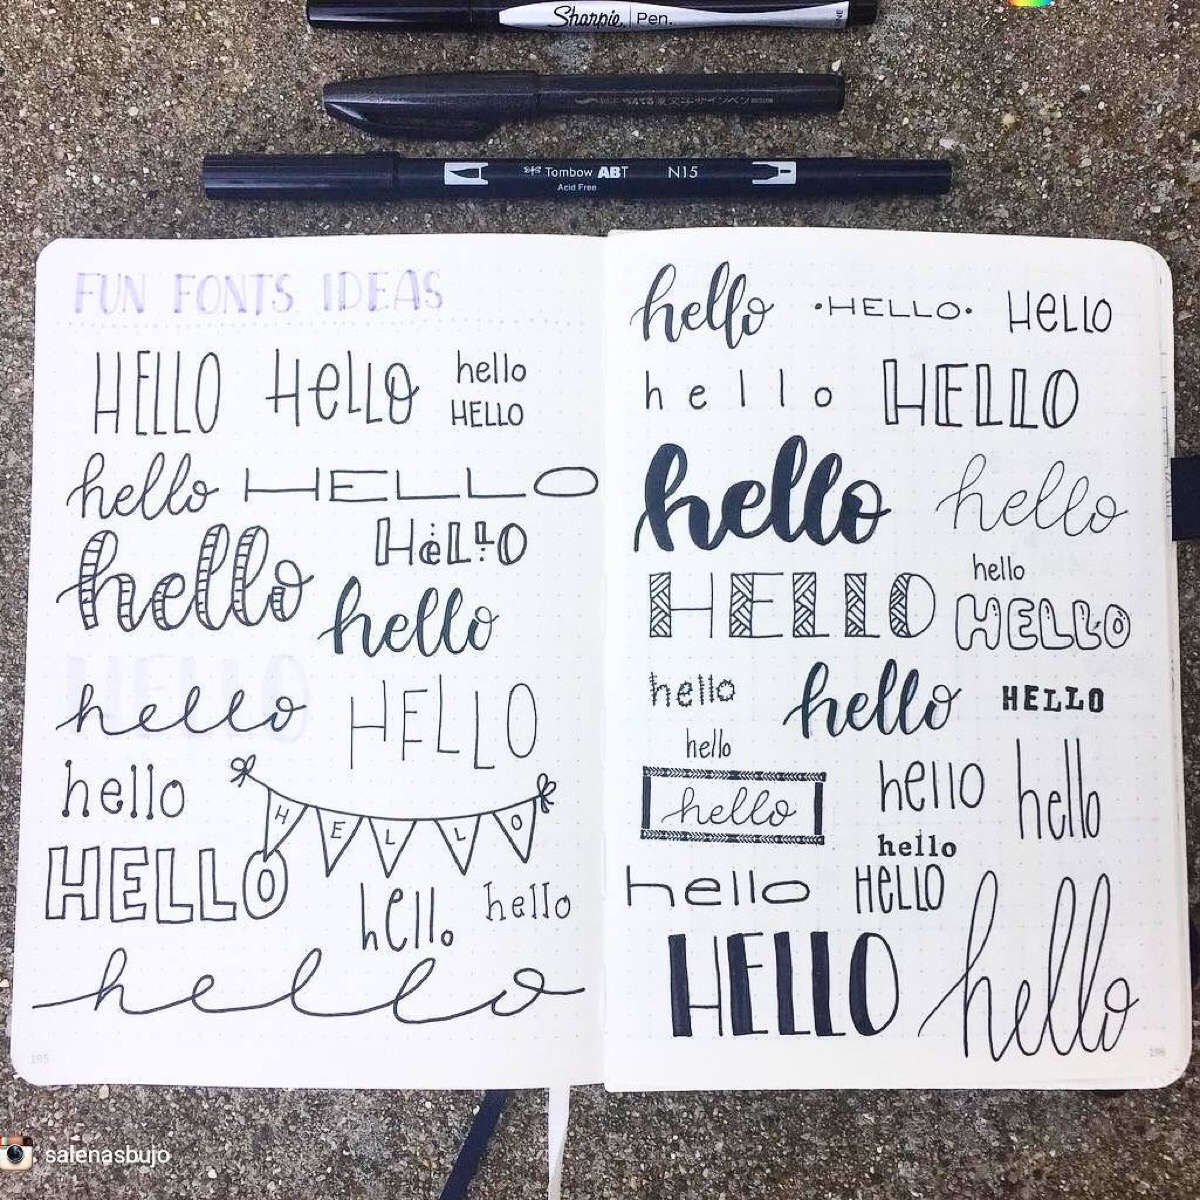 Sharpie Pen.
Tombow ABT N15
Acid Free
FUN FONTS IDEAS
HELLO HeLLO hello
HELLO
hello HELLO
hello HeLLO
hello
HELLO
hello HELLO
hello
H E L L O
HELLO
hello hello
hello
195
hello •HELLO• HeLLO
hello HELLO
hello hello
hello
HELLO HELLO
hello hello HELLO
hello
hello hello hello
hello
hello HELLO
HELLO hello
196
salenasbujo